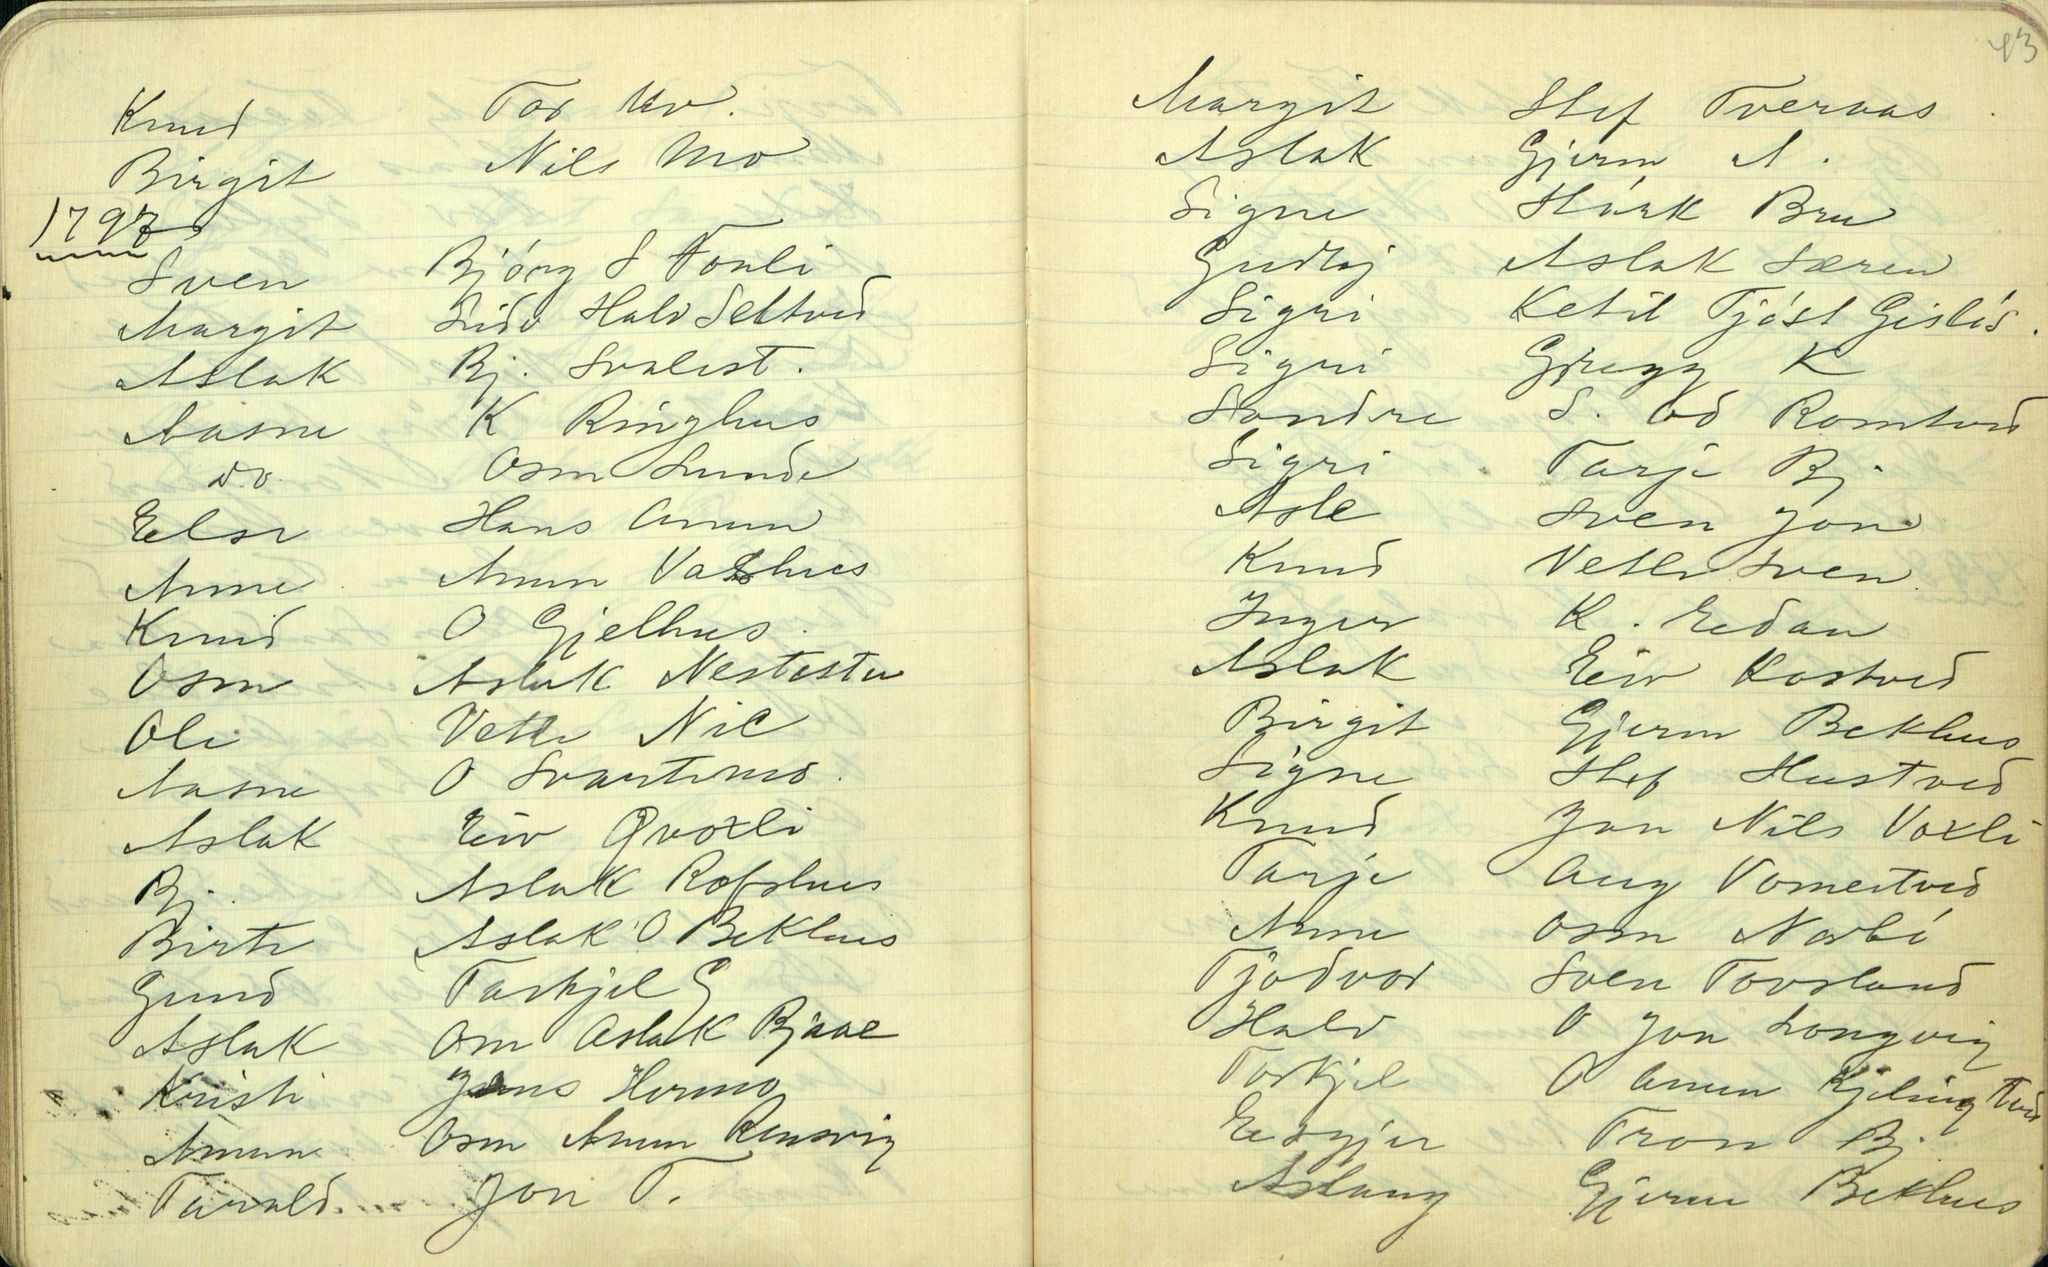 Knud Tov Mo.
Birgit Nils Mo
1797
Sven Bjórg S Tonli
Margit Halv Seltved
Aslak Bj. Svalest.
Aasne K Ringhus
do Osm Lunde
Else Hans Amun
Anne Amun Vashus
Knud O Gjelhus.
Osm Aslak Nestestu
Ole Vetle Nil
Aasne O Svartemo.
Aslak Eiv Qvoxli
Bj. Aslak Rofshus
Birte Aslak O Bekhus
Gund Tarkjel G
Aslak Om Aslak Bjaae
Kristi Jens Hermo
Amun Osm Amun Ramsvig
Tarald Jon T.
43
Margit Stef Tveraas.
Aslak Gjerm A.
Signe Hávk Bru
Gudlej Aslak Særen
Sigri Ketil Tjóst Gislós.
Sigri Gregg K
Sondre S. Od Romtved
Sigri Tarje Bj.
Asle Sven Jon
Knud Vetle Sven
Inger K. Edan
Aslak Eiv Kostved
Birgit Gjerm Bekhus
Signe Stef Hustved
Knud Jon Nils Voxli
Tarje Aug Vomestved
Anne Osm Norbó
Tjodvor Sven Tovsland
Halv O Jon Longvig
Torkjel O Amun Kjelingtved
Tron Bj.
Aslaug Gjerm Bekhus